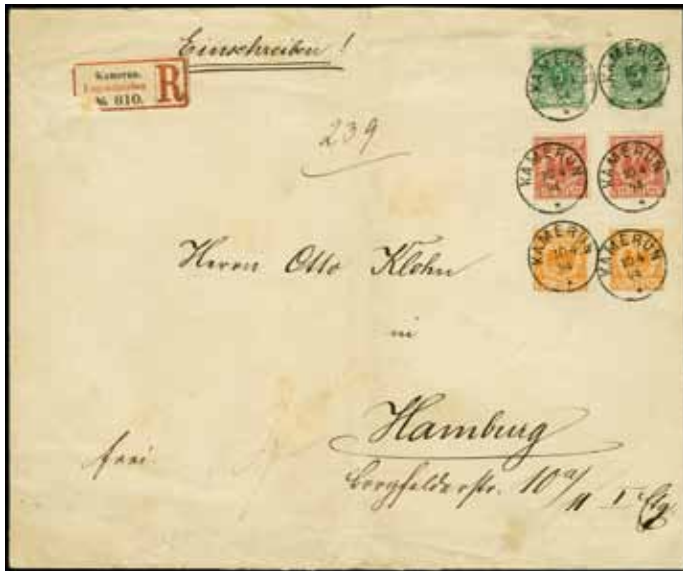 Einschreiben!
Kamerun.
Eingeschrieben
№ 810.
R
239
KAMERUN
10 4
94
KAMERUN
10 4
94
KAMERUN
10 4
94
KAMERUN
10 4
94
KAMERUN
10 4
94
KAMERUN
10 4
94
Herrn Otto Klohn
in
Hamburg
frei.
Borgfelderstr. 10 a/II I Etg.